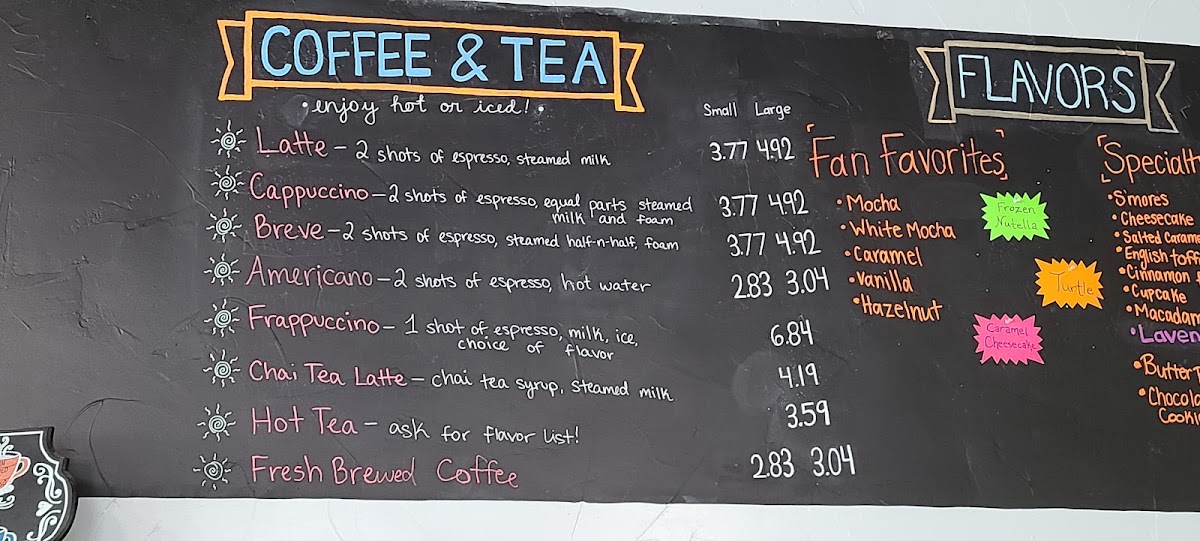 COFFEE & TEA
•enjoy hot or iced!•
Small Large
Latte – 2 shots of espresso, steamed milk 3.77 4.92
Cappuccino – 2 shots of espresso, equal parts steamed
milk and foam 3.77 4.92
Breve – 2 shots of espresso, steamed half-n-half, foam 3.77 4.92
Americano – 2 shots of espresso, hot water 2.83 3.04
Frappuccino – 1 shot of espresso, milk, ice,
choice of flavor 6.84
Chai Tea Latte – chai tea syrup, steamed milk 4.19
Hot Tea – ask for flavor list! 3.59
Fresh Brewed Coffee 2.83 3.04
FLAVORS
Fan Favorites
• Mocha
• White Mocha
• Caramel
• Vanilla
• Hazelnut
Frozen
Nutella
Turtle
Caramel
Cheesecake
Specialt
• S'mores
• Cheesecake
• Salted Carame
• English toff
• Cinnamon
• Cupcake
• Macadam
• Laven
• Butter
• Chocola
Cooki